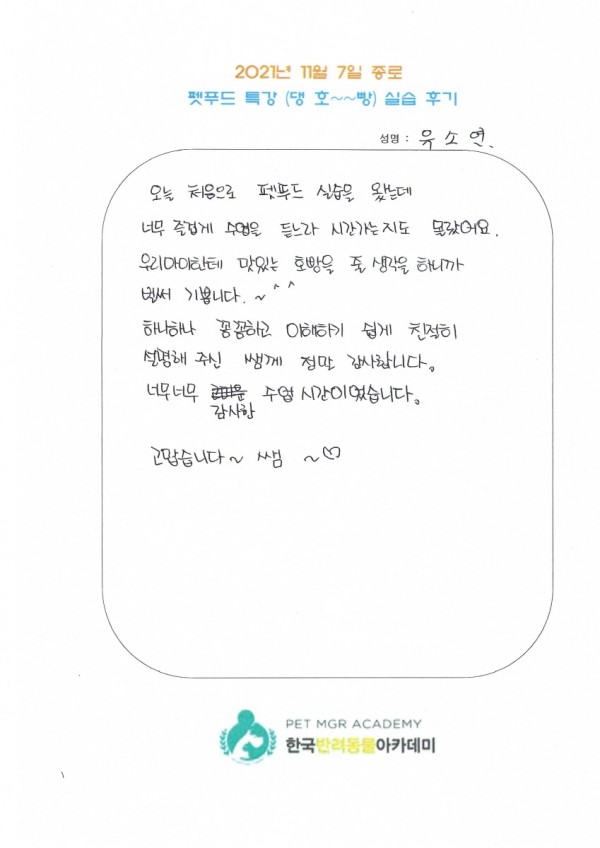 2021년 11월 7일 종로
펫푸드 특강 (댕 호~~빵) 실습 후기
성명 : 유소연.
오늘 처음으로 펫푸드 실습을 왔는데
너무 즐겁게 수업을 듣느라 시간가는지도 몰랐어요.
우리아이한테 맛있는 호빵을 줄 생각을 하니까
벌써 기쁩니다. ~ ^ ^
하나하나 꼼꼼하고 이해하기 쉽게 친절히
설명해 주신 쌤께 정말 감사합니다.
너무너무 수업 시간이었습니다.
감사한
고맙습니다~ 쌤 ~♡
PET MGR ACADEMY
한국반려동물아카데미